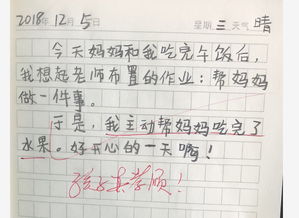 2018年12月5日 星期三 天气 晴
今天妈妈和我吃完午饭后,
我想起老师布置的作业:帮妈妈
做一件事。
于是,我主动帮妈妈吃完了
水果。好开心的一天啊!
孩子真孝顺!